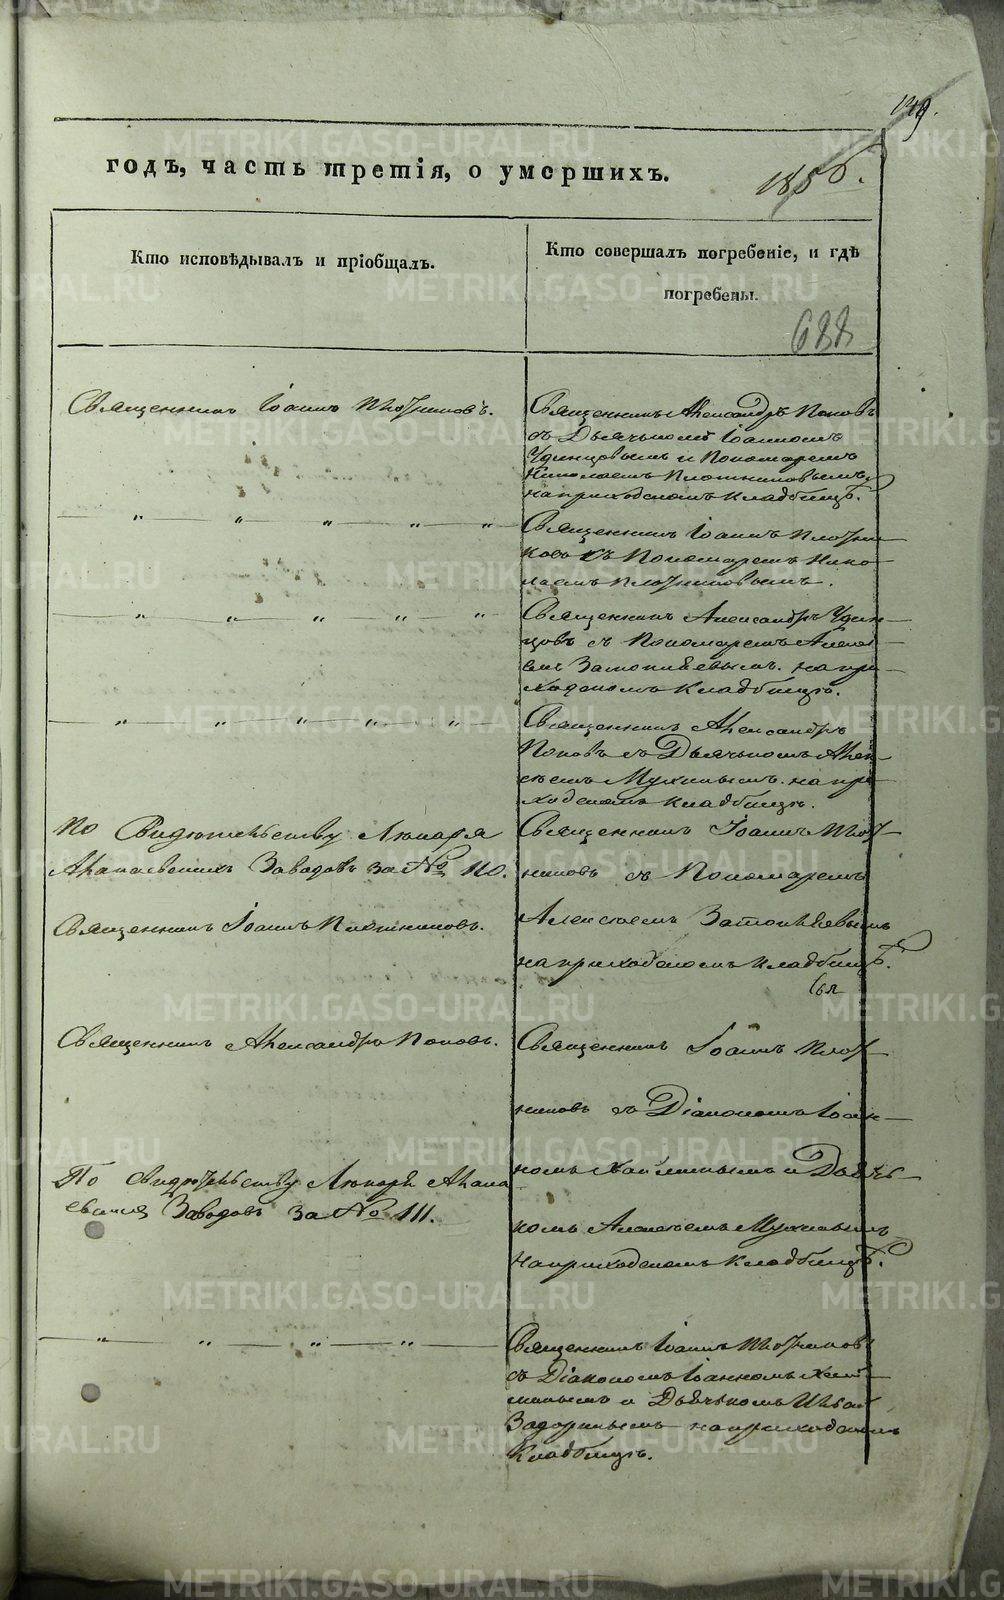 149.
годъ, часть третія, о умершихъ.
1856.
Кто исповѣдывалъ и пріобщалъ.
Кто совершалъ погребеніе, и гдѣ
погребены.
688
Священникъ Іоаннъ Плотниковъ.
Священникъ Александръ Поповъ
съ Дьячькомъ Іоанномъ
Удинцовымъ и Пономаремъ
Николаемъ Плотниковымъ
на приходскомъ кладбищѣ.
— " — " — " — " — "
Священникъ Іоаннъ Плотни-
ковъ съ Пономаремъ Нико-
лаемъ Плотниковымъ.
— " — " — " — " — "
Священникъ Александръ Удин-
цовъ съ Пономаремъ Алексѣ-
емъ на при-
ходскомъ кладбищѣ.
— " — " — " — " — "
Священникъ Александръ
Поповъ съ Дьячькомъ Алек-
сѣемъ Мухинымъ на при-
ходскомъ кладбищѣ.
По Свидѣтельству Лѣкаря
Заводовъ за № 110.
Священникъ Іоаннъ Плот-
никовъ съ Пономаремъ
Священникъ Іоаннъ Плотниковъ.
Алексѣемъ
на приходскомъ кладбищѣ.
Священникъ Александръ Поповъ.
Священникъ Іоаннъ Плот-
никовъ съ Діакономъ Іоан-
По свидѣтельству Лѣкаря
Заводовъ за № 111.
номъ и Дьячь-
комъ Алексѣемъ Мухинымъ
на приходскомъ кладбищѣ.
— " — " — " — " —
Священникъ Іоаннъ Плотниковъ
съ Діакономъ Іоанномъ
и Дьячькомъ
Задоринымъ на приходскомъ
кладбищѣ.
METRIKI.GASO-URAL.RU